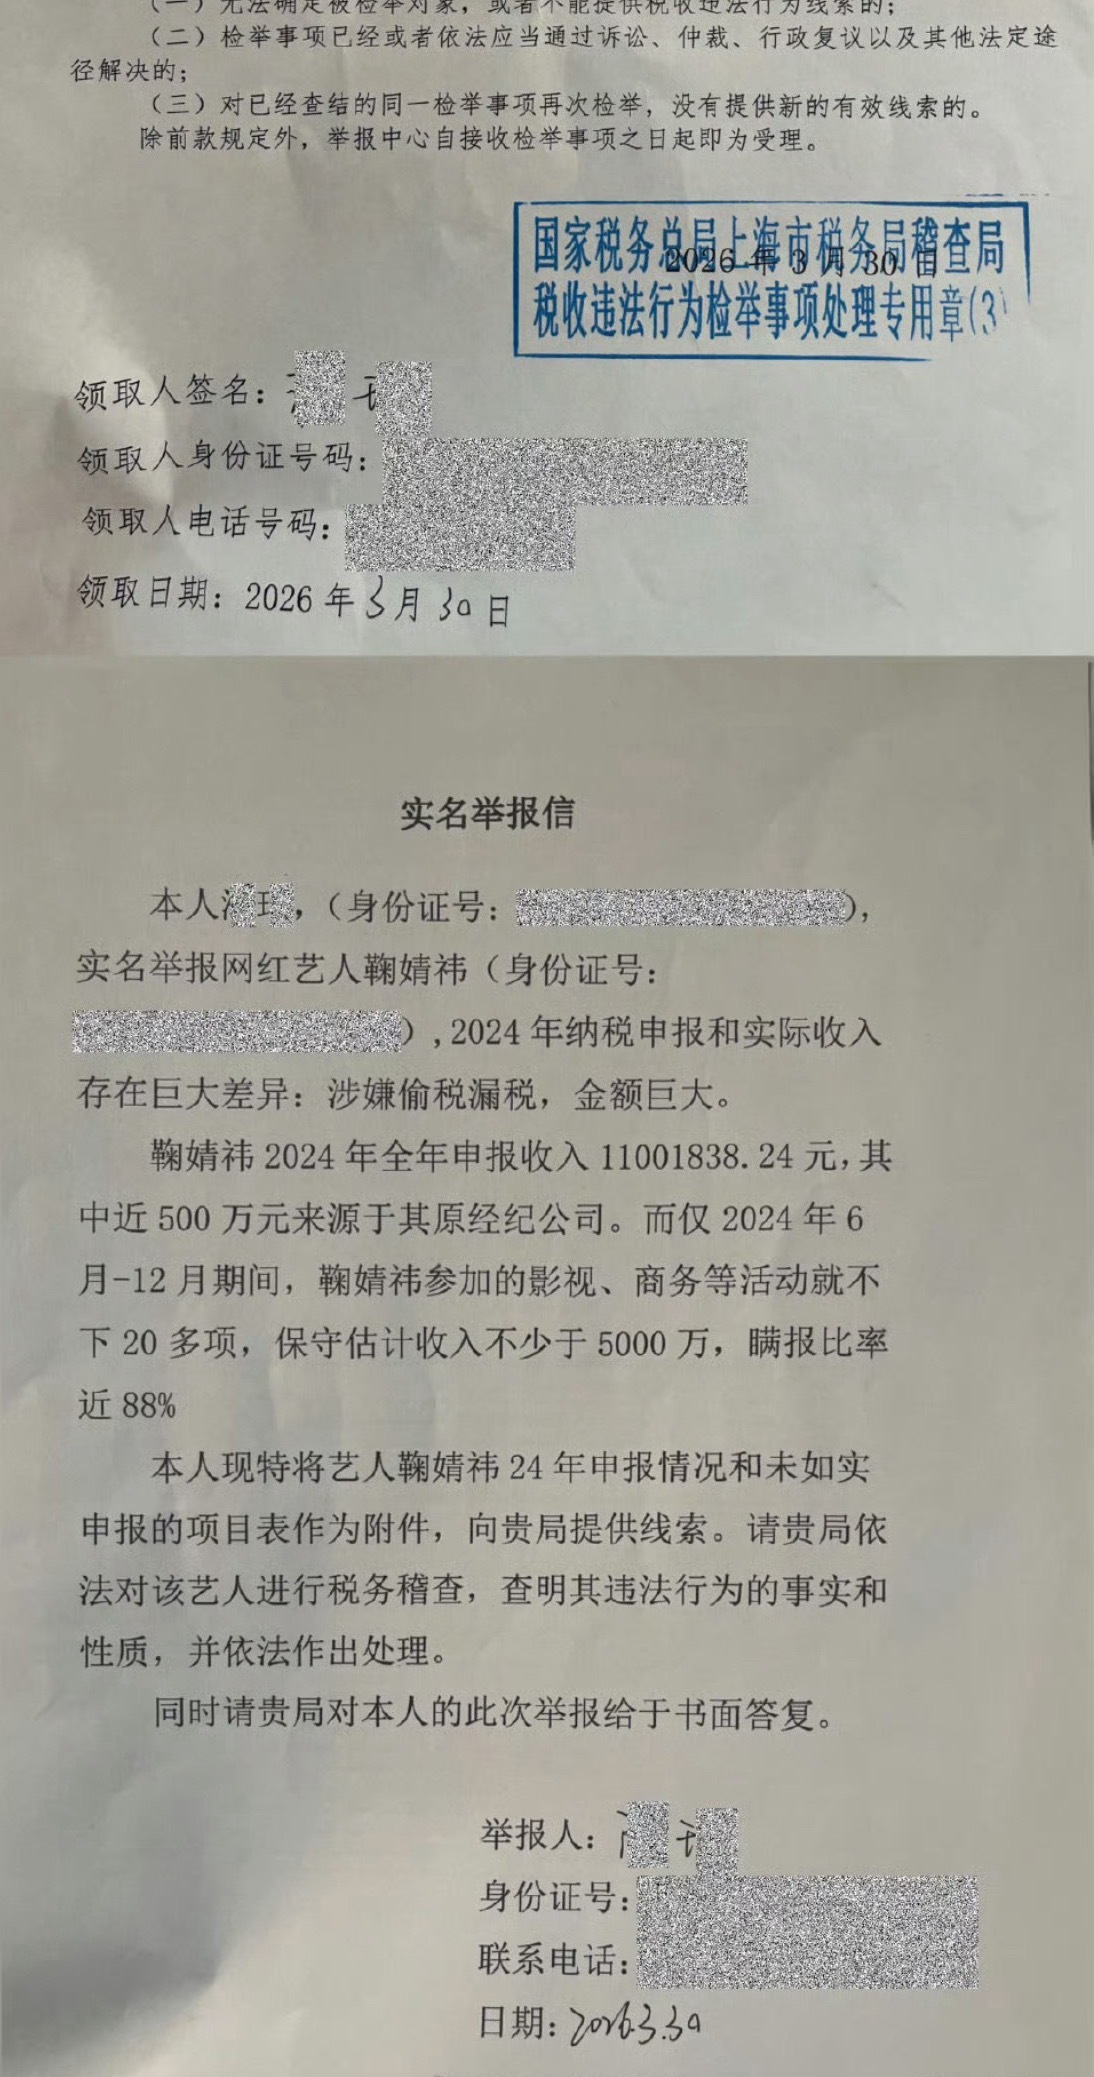 （一）无法确定被检举对象，或者不能提供税收违法行为线索的；
（二）检举事项已经或者依法应当通过诉讼、仲裁、行政复议以及其他法定途
径解决的；
（三）对已经查结的同一检举事项再次检举，没有提供新的有效线索的。
除前款规定外，举报中心自接收检举事项之日起即为受理。
国家税务总局上海市税务局稽查局
2026 年 3 月 30 日
税收违法行为检举事项处理专用章(3
领取人签名：
领取人身份证号码：
领取人电话号码：
领取日期：2026 年 3 月 30 日
实名举报信
本人，（身份证号：），
实名举报网红艺人鞠婧祎（身份证号：
）,2024 年纳税申报和实际收入
存在巨大差异：涉嫌偷税漏税，金额巨大。
鞠婧祎 2024 年全年申报收入 11001838.24 元，其
中近 500 万元来源于其原经纪公司。而仅 2024 年 6
月-12 月期间，鞠婧祎参加的影视、商务等活动就不
下 20 多项，保守估计收入不少于 5000 万，瞒报比率
近 88%
本人现特将艺人鞠婧祎 24 年申报情况和未如实
申报的项目表作为附件，向贵局提供线索。请贵局依
法对该艺人进行税务稽查，查明其违法行为的事实和
性质，并依法作出处理。
同时请贵局对本人的此次举报给于书面答复。
举报人：
身份证号：
联系电话：
日期：2026.3.30